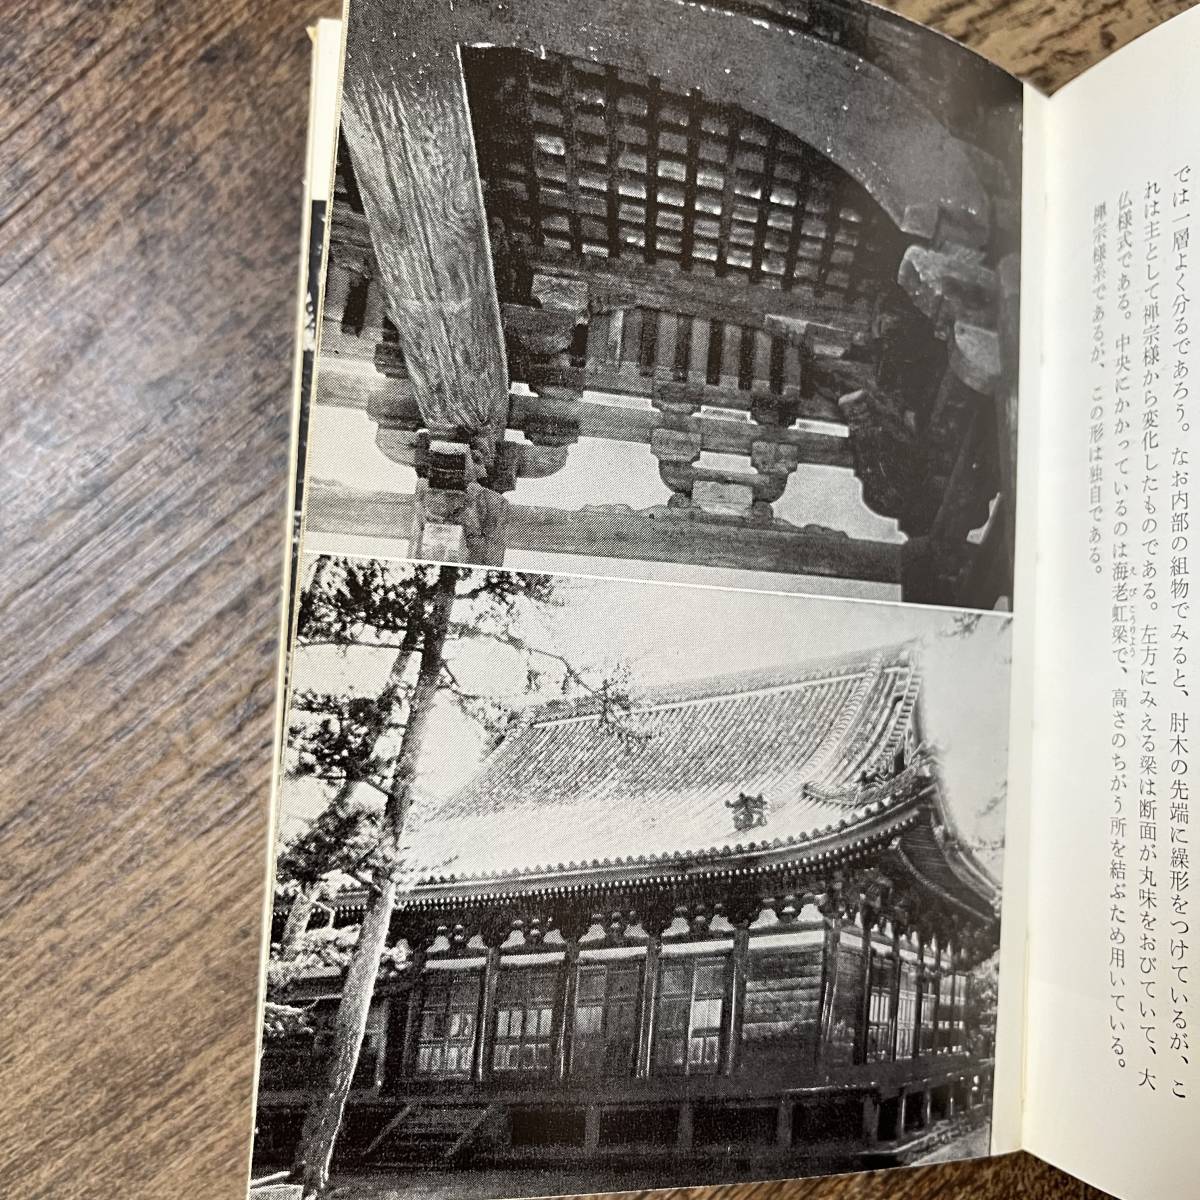 では一層よく分るであろう。なお内部の組物でみると、肘木の先端に繰形をつけているが、こ
れは主として禅宗様から変化したものである。左方にみえる梁は断面が丸味をおびていて、大
仏様式である。中央にかかっているのは海老虹梁で、高さのちがう所を結ぶため用いている。
えびこうりよう
禅宗様系であるが、この形は独自である。